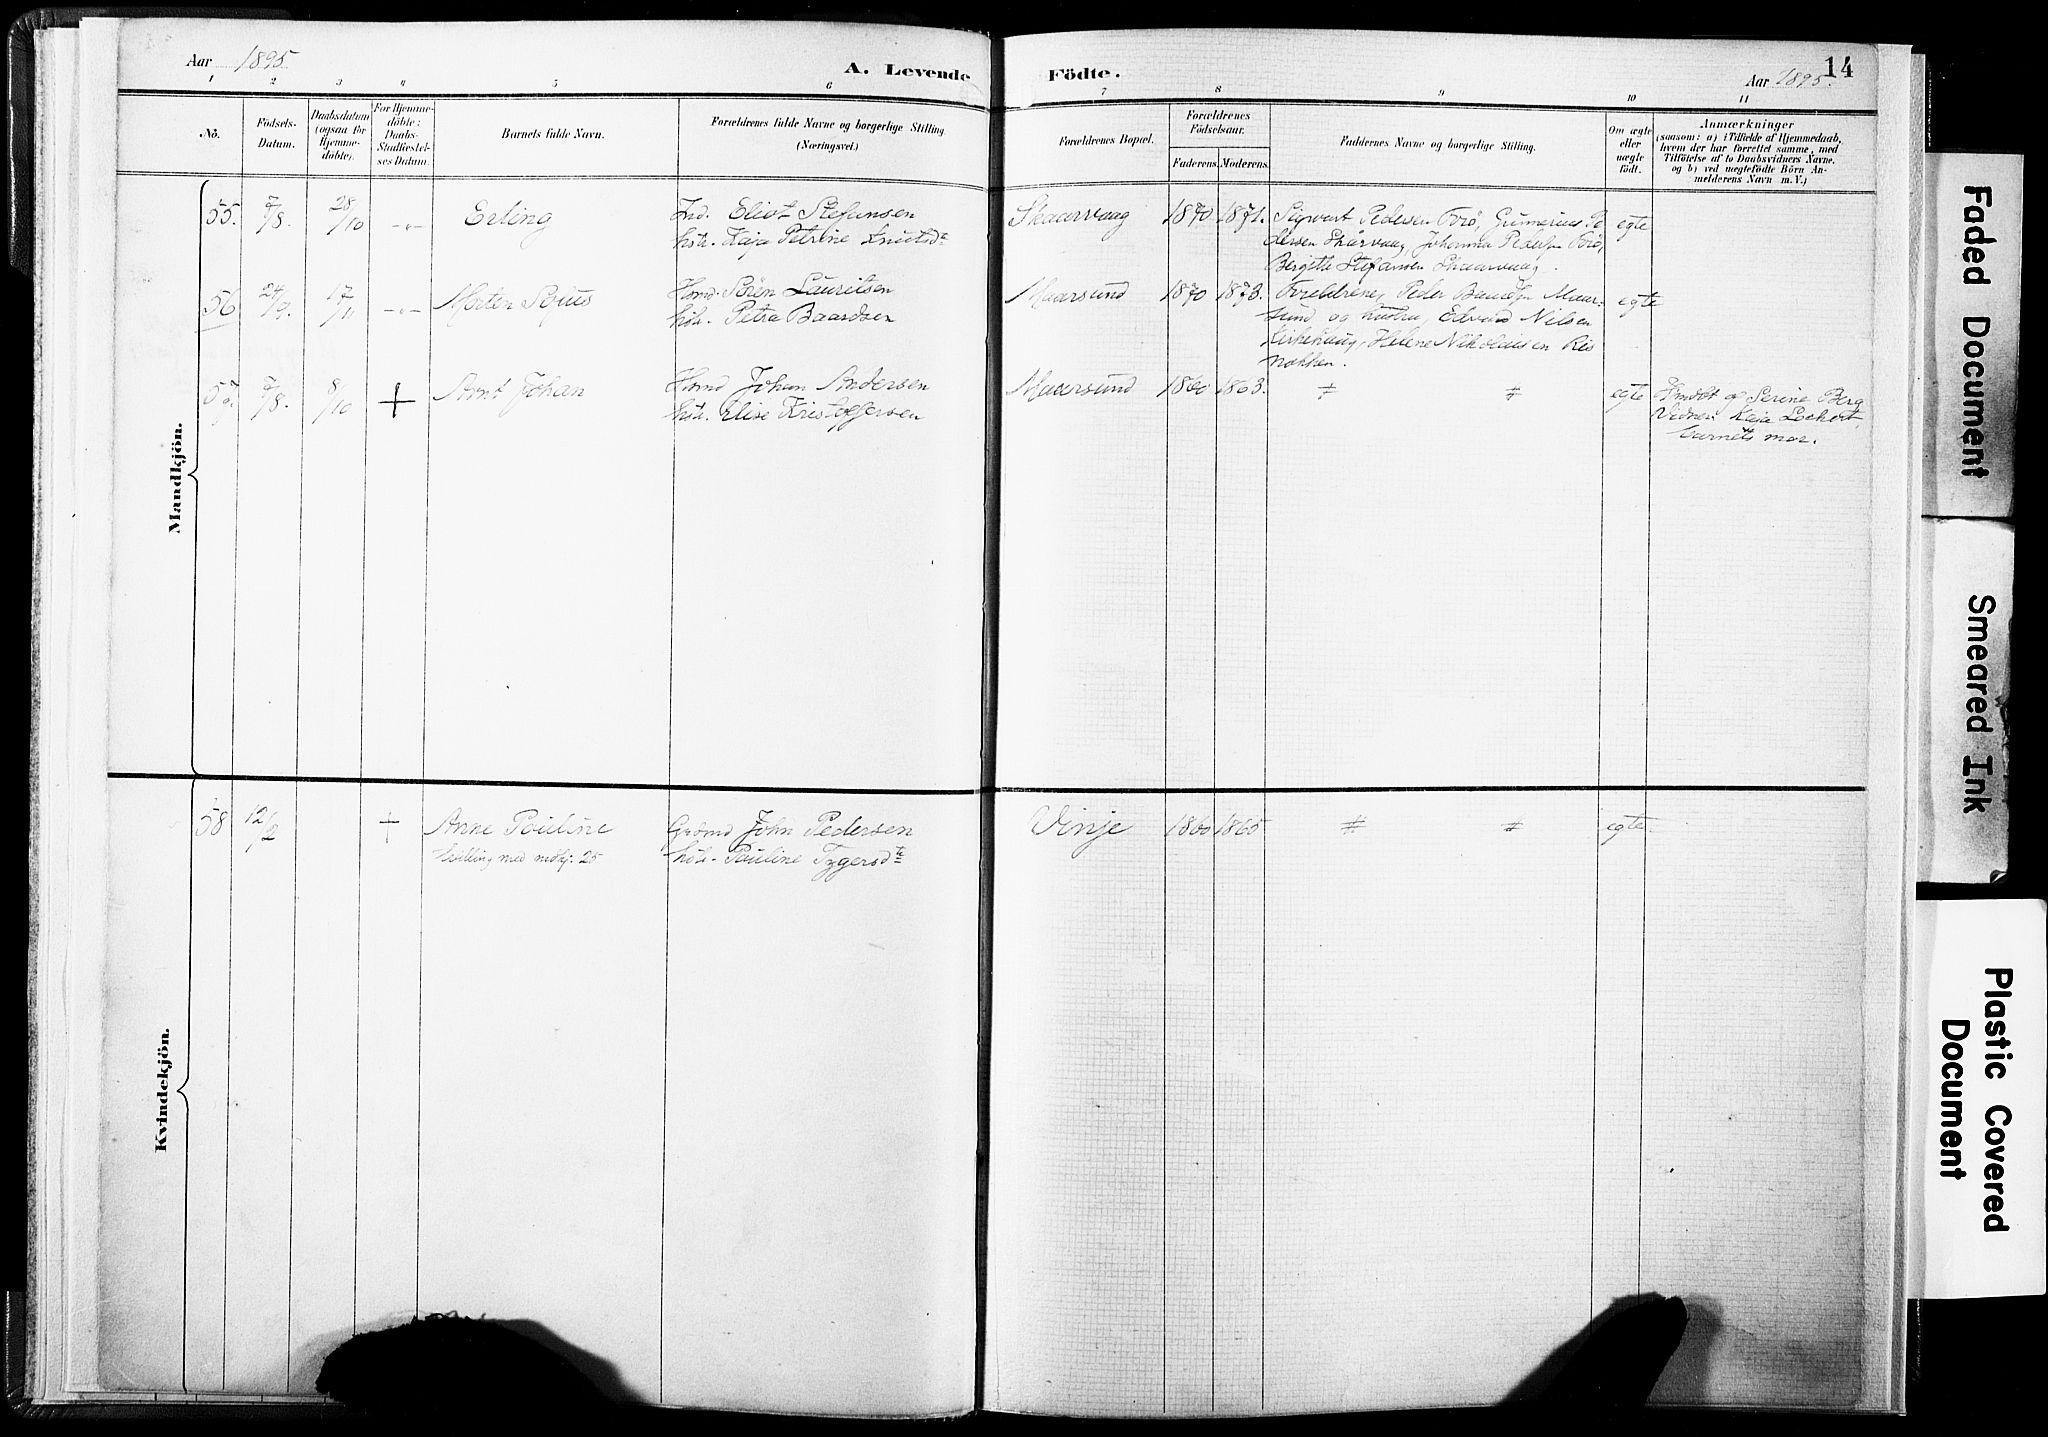 Aar 1895
A. Levende
Födte.
Aar 1895.
14
1 2 3 4 5 6
7 8 9 10 11
Nö.
Födsels-
Datum.
Daabsdatum
(ogsaa for
Hjemme-
döbte).
For Hjemme-
döbte:
Daabs-
Stadfæstel-
ses Datum.
Barnets fulde Navn.
Forældrenes fulde Navne og borgerlige Stilling.
(Næringsvei.)
Forældrenes Bopæl.
Forældrenes
Födselsaar.
Faderens. Moderens.
Faddernes Navne og borgerlige Stilling.
Om ægte
eller
uægte
födt.
Anmærkninger
(saasom: a) i Tilfælde af Hjemmedaab,
hvem der har forrettet samme, med
Tilföielse af to Daabsvidners Navne.
og b) ved uægtefödte Börn An-
melderens Navn m. V.)
Mandkjön.
55. 7/8. 28/10 -"- Erling
Ind. Eliot Stefansen
hstr. Kaja Petrine Knutsdtr
Skaarvaag 1870 1871.
Sigvart Pedersen Forö, Gunnerius Pe-
dersen Skårvaag, Johanna
Bergitte Stefansen Skaarvaag.
egte
56 24/9. 17/11 -"- Morten
Hsmd. Sören Lauritsen
hstr. Petra Baardsen
Maarsund 1870 1873.
Forældrene, Peder Maar-
sund og hustru, Edvard Nilsen
Kirkehaug, Helene Nikolaisen Ris
nakken.
egte
57. 7/8. 8/10 + Arnt Johan
Hsmd Johan Andersen
hstr. Elise Kristoffersen
Maarsund 1860 1863. # #
egte
Hmdbt af Serine Berg
Vidner: Kaja
barnets mor.
Kvindekjön.
58 12/2 + Anne Pauline
tvilling med mdkj. 25
Grdmd John Pedersen
hstr. Pauline
Vinje 1860 1865 # #
egte
Faded Document
Smeared Ink
Plastic Covered
Document